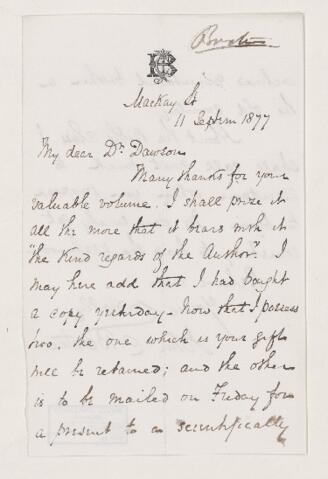 Mackay St
11 Septem 1877
My dear Dr. Dawson
Many thanks for your
valuable volume. I shall prize it
all the more that it bears with it
"the Kind regards of the Author". I
may here add that I had bought
a copy yesterday - Now that I possess
two, the one which is your gift
will be retained; and the other
is to be mailed on Friday for
a present to a scientifically